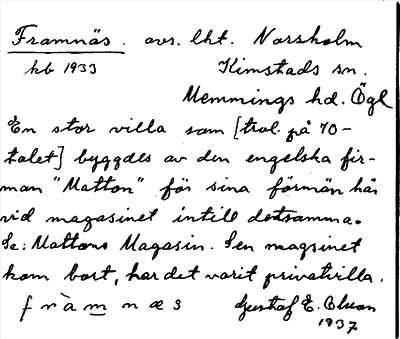 Framnäs. avs. lht. Norsholm
kb 1933 Kimstads sn.
Memmings hd. Ögl
En stor villa som [trol. på 70-
talet] byggdes av den engelska fir-
man "Matton" för sina förmän här
vid magasinet intill detsamma.
Se: Mattons Magasin. Sen magsinet
kom bort, har det varit privatvilla.
f r à m n æ s Gustaf E. Olson
1937